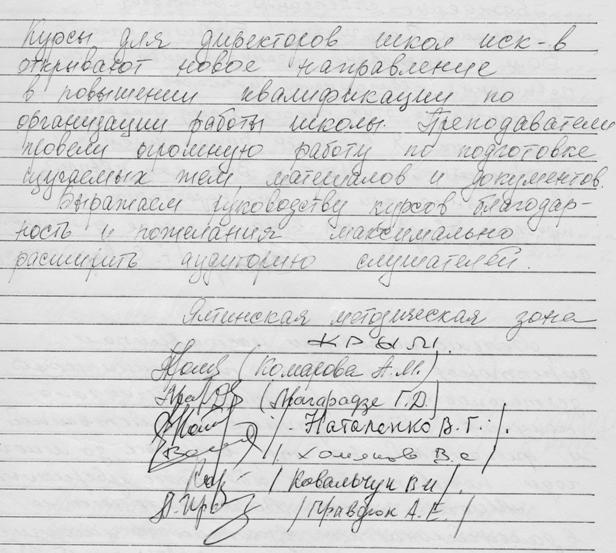 Курсы для директоров школ иск-в
открывают новое направление
в повышении квалификации по
организации работы школы. Преподаватели
провели огромную работу по подготовке
тем материалов и документов.
Выражаем руководству курсов благодар-
ность и пожелания максимально
расширить аудиторию слушателей.
Ялтинская методическая зона
КРЫМ.
(Комарова А.М.)
(Магарадзе Г.Д)
/. Наталенко В.Г. /.
/ Хомяков В.С /
/ Ковальчук В.И /.
/ Правдюк А.Е. /